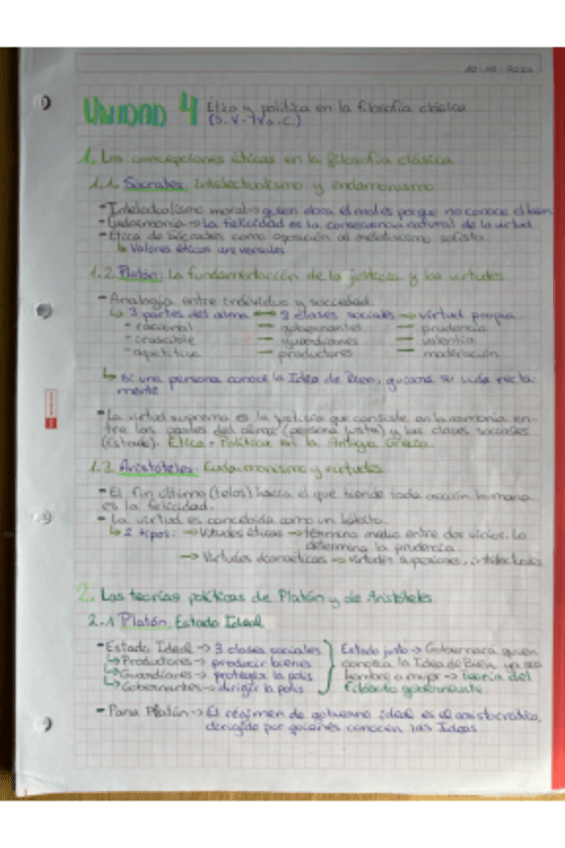 10-10-2024
UNIDAD 4 Ética y política en la filosofía clásica
(S. V-IV a.C.)
1. Las concepciones éticas en la filosofía clásica
1.1. Sócrates: intelectualismo y eudemonismo
- Intelectualismo moral → quien obra el mal es porque no conoce el bien
- Eudemonismo → La felicidad es la consecuencia natural de la virtud
- Ética de Sócrates como oposición al relativismo sofista
↳ Valores éticos universales
1.2. Platón: La fundamentación de la justicia y las virtudes
- Analogía entre individuo y sociedad
↳ 3 partes del alma ↔ 3 clases sociales → virtud propia
- racional — gobernantes — prudencia
- irascible — guardianes — valentía
- apetitiva — productores — moderación
↳ Si una persona conoce la Idea de Bien, guiará su vida recta-
mente
- La virtud suprema es la justicia que consiste en la armonía en-
tre las partes del alma (persona justa) y las clases sociales
(Estado). Ética = Política en la Antigua Grecia.
1.3. Aristóteles: Eudaimonismo y virtudes
- El fin último (telos) hacia el que tiende toda acción humana
es la felicidad.
- La virtud es concebida como un hábito.
↳ 2 tipos: → Virtudes éticas → término medio entre dos vicios. Lo
determina la prudencia
→ Virtudes dianoéticas → virtudes superiores, intelectuales
2. Las teorías políticas de Platón y de Aristóteles
2.1 Platón: Estado Ideal
- Estado Ideal → 3 clases sociales
↳ Productores → producir bienes
↳ Guardianes → proteger la polis
↳ Gobernantes → dirigir la polis
Estado justo → Gobernará quien
conozca la Idea de Bien, ya sea
hombre o mujer → teoría del
filósofo gobernante
- Para Platón → El régimen de gobierno ideal es el aristocrático,
dirigido por quienes conocen las Ideas.